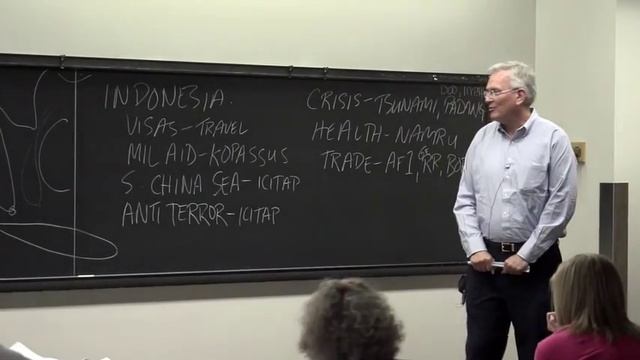 INDONESIA
VISAS-TRAVEL
MIL AID-KOPASSUS
S. CHINA SEA-ICITAP
ANTI TERROR-ICITAP
DOD,
CRISIS-TSUNAMI, PADANG
HEALTH-NAMRU
TRADE-AF1, RR, BO